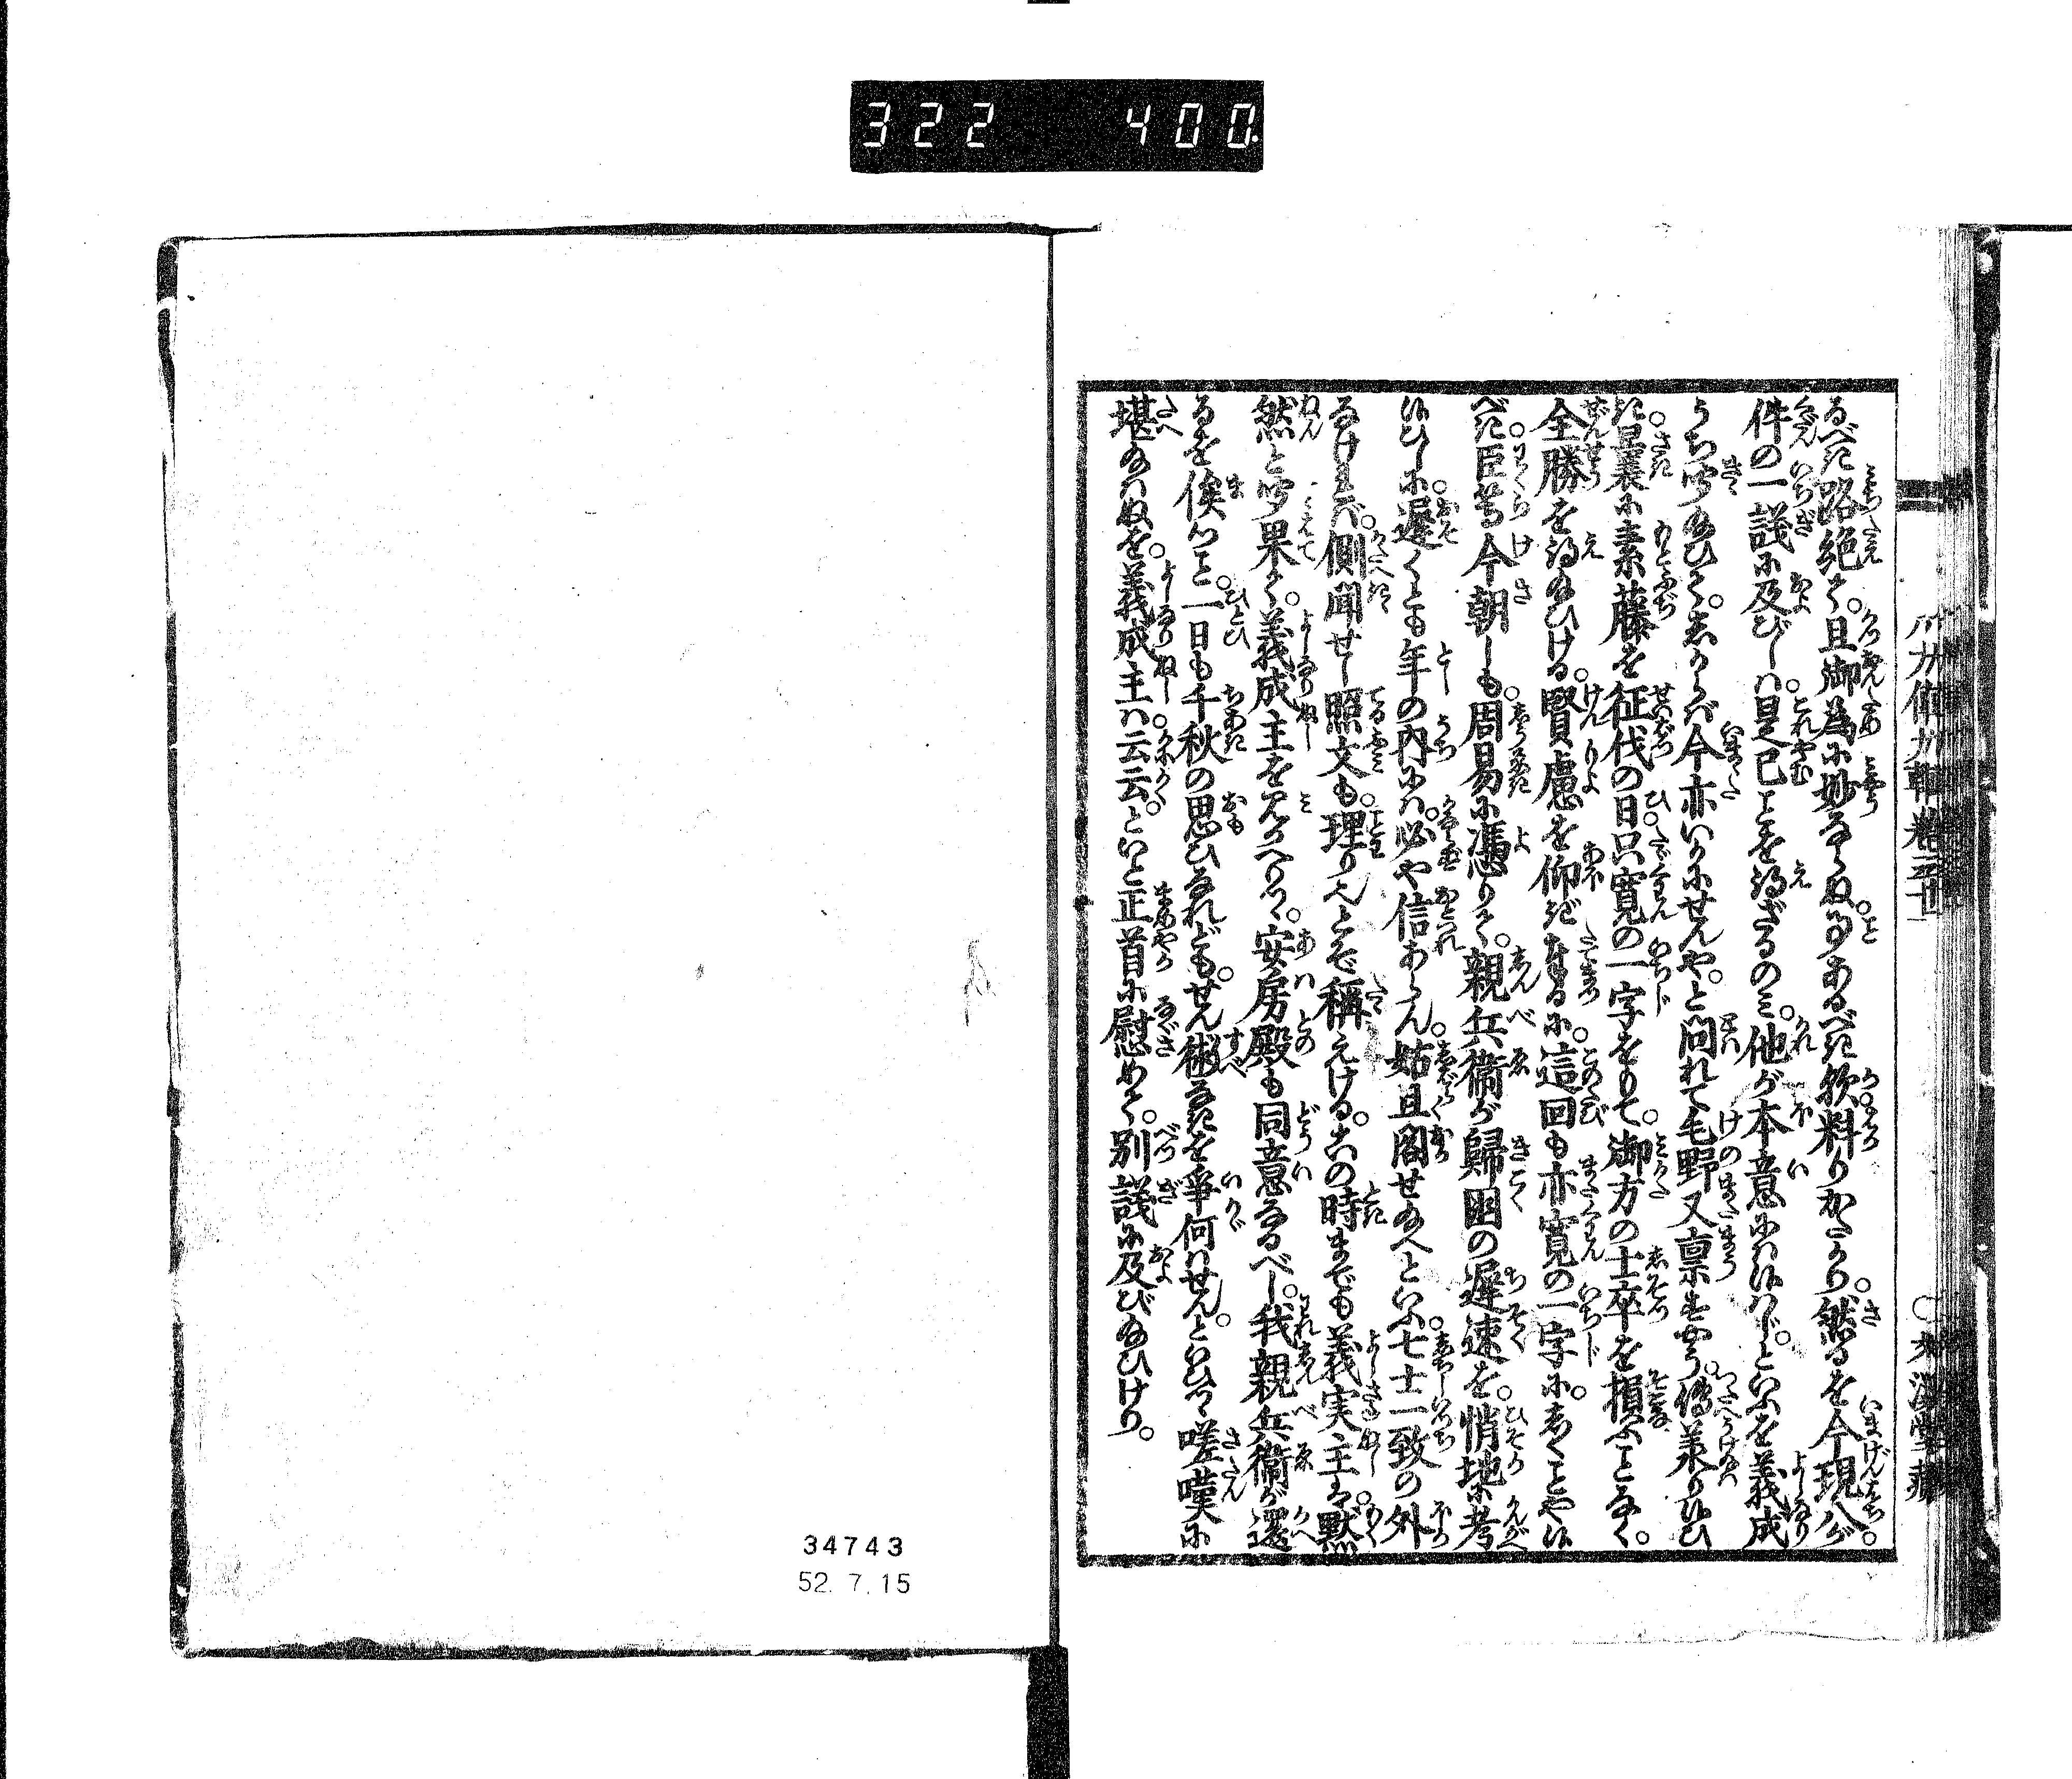 322 400
るべき路絶て。且御為に妙ならぬ。事あるべき歟料りかたかり。然るを今現八が。
件の一議に及びしは。是已ことを得ざるのミ。他が本意にははべらず。といふを義成
うち聞給ひて。しからば今亦いかにせんや。と問れて毛野又稟すやう。傳承り候ひ
き。曩に素藤を征伐の日。只寛の一字をもて。御方の士卒を損ふことなく。
全勝を得給ひける。賢慮を仰ぎ奉るに。這回も亦寛の一字に。しくことや候
べき。臣等今朝しも。周易に憑りて。親兵衛が歸国の遅速を。悄地に考
候ひしに。遅くとも年の内には。必や信あらん。姑且閣せ給へといふ。七士一致の外
なければ。側聞せし照文も。理りんとぞ稱えける。この時までも義実主は。黙
然と聞果て。義成主を見かへりつゝ。安房殿も同意なるべし。我親兵衛が還
るを俟つこと。一日も千秋の思ひなれども。せん術なきを爭何はせん。といひつゝ嗟嘆に
堪給はぬを。義成主は云云。といと正首に慰めて。別議に及び給ひけり。
34743
52.7.15